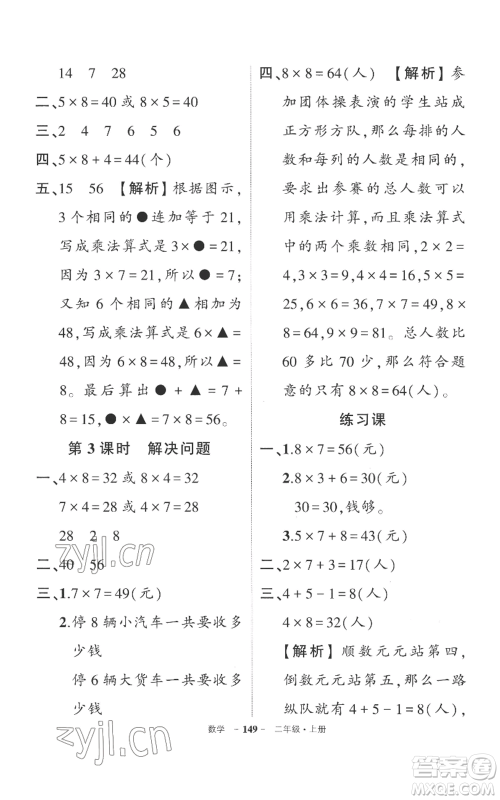 14　7　28
二、5×8=40或8×5=40
三、2　4　7　6　5　6
四、5×8+4=44(个)
五、15　56　【解析】根据图示,
3个相同的●连加等于21,
写成乘法算式是3×●=21,
因为3×7=21,所以●=7;
又知6个相同的▲相加为
48,写成乘法算式6×▲=
48,因为6×8=48,所以▲=
8。最后算出●+▲=7+
8=15,●×▲=7×8=56。
第3课时　解决问题
一、4×8=32或8×4=32
7×4=28或4×7=28
28　2　8
二、40　56
三、1.7×7=49(元)
2.停8辆小汽车一共要收多
少钱
停6辆大货车一共要收多
少钱
四、8×8=64(人)　【解析】参
加团体操表演的学生站成
正方形方队,那么每排的人
数和每列的人数是相同的,
所以要求出参赛的总人数可以
使用乘法计算,且乘法算式
中的两个乘数相同,2×2=
4,3×3=9,4×4=16,5×5=
25,6×6=36,7×7=49,
8×8=64。总人数比
60多比70少,那么符合题
意的只有8×8=64(人)。
练习课
一、1.8×7=56(元)
2.3×8+6=30(元)
30=30,钱够。
3.5×7+8=43(元)
二、2×7+3=17(人)
三、4+5-1=8(人)
4×8=32(人)
【解析】顺数元元站第四,
倒数元元站第五,那么一路
纵队就有4+5-1=8(人)
数学　-149-　二年级·上册
zyjl.cn
zyjl.cn
答案圈